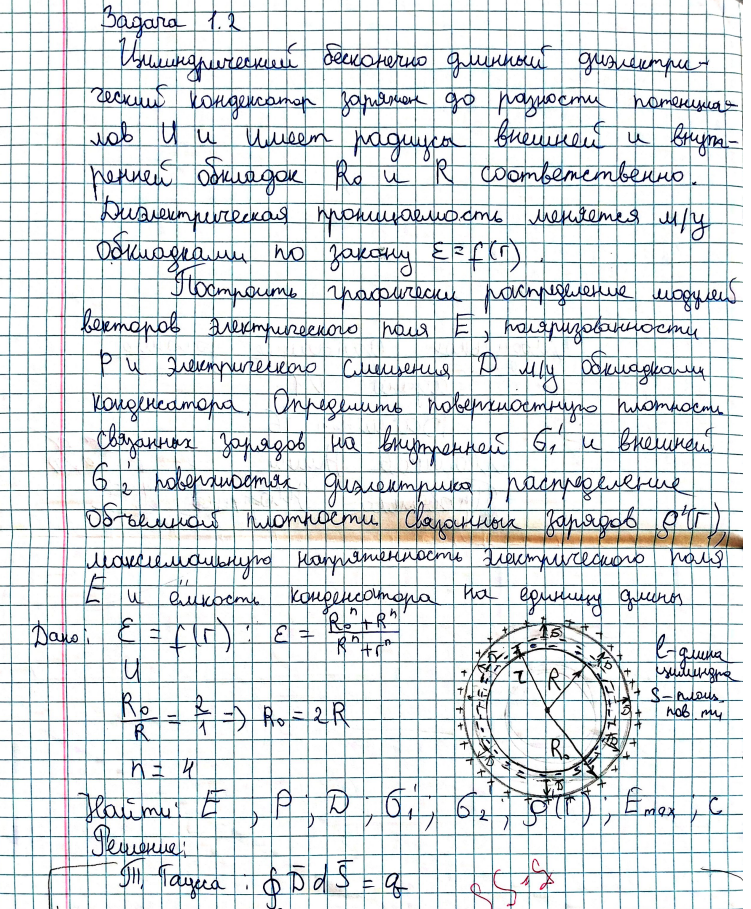 Задача 1.2
Цилиндрический бесконечно длинный диэлектри-
ческий конденсатор заряжен до разности потенциа-
лов U и имеет радиусы внешней и внут-
ренней обкладок R₀ и R соответственно.
Диэлектрическая проницаемость меняется м/у
обкладками по закону ε = f(r).
Построить графически распределение модулей
векторов электрического поля E, поляризованности
P и электрического смещения D м/у обкладками
конденсатора. Определить поверхностную плотность
связанных зарядов на внутренней σ₁' и внешней
σ₂' поверхностях диэлектрика, распределение
объемной плотности связанных зарядов ρ'(r),
максимальную напряженность электрического поля
E и ёмкость конденсатора на единицу длины
Дано: ε = f(r): ε = (R₀ⁿ + Rⁿ)/(Rⁿ + rⁿ)
U
R₀/R = 2/1 => R₀ = 2R
n = 4
r
R
R₀
l - длина
цилиндра
S - площ.
пов-ти
Найти: E, P, D, σ₁', σ₂', ρ'(r); E max; c
Решение:
Т. Гаусса: ∮ D̄ d S̄ = q